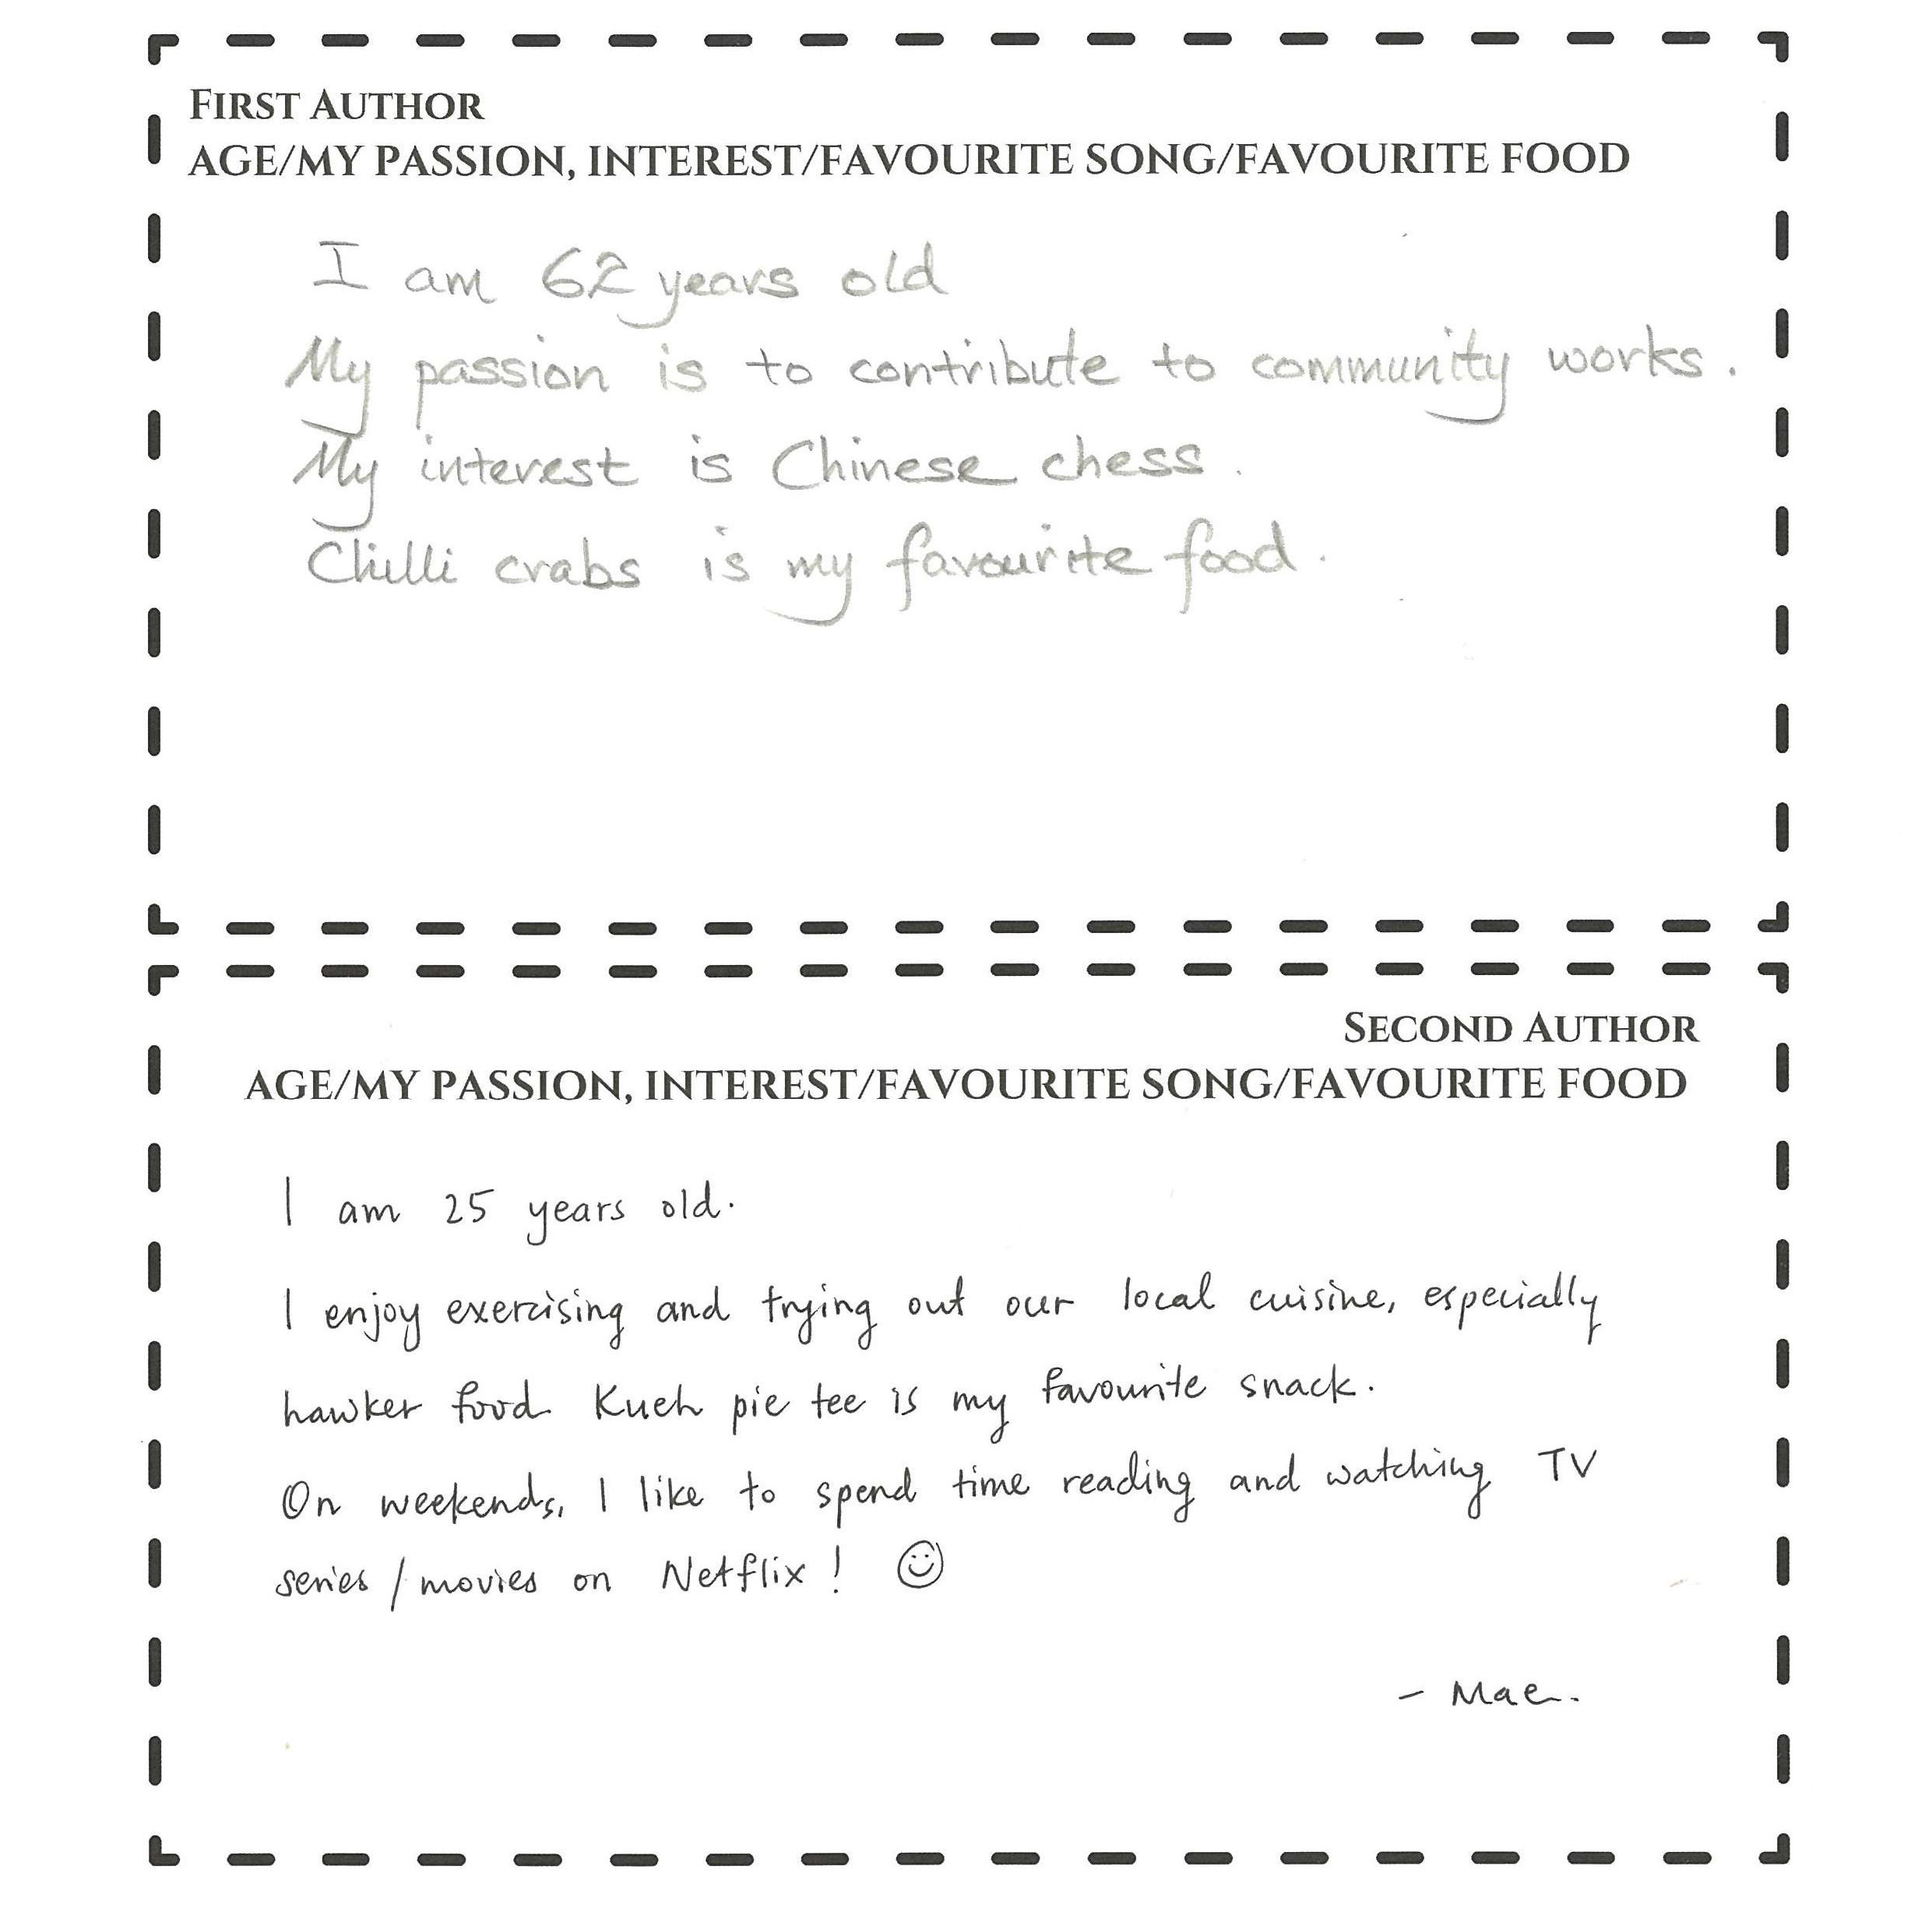 FIRST AUTHOR
AGE/MY PASSION, INTEREST/FAVOURITE SONG/FAVOURITE FOOD
I am 62 years old
My passion is to contribute to community works.
My interest is Chinese chess.
Chilli crabs is my favourite food.
SECOND AUTHOR
AGE/MY PASSION, INTEREST/FAVOURITE SONG/FAVOURITE FOOD
I am 25 years old.
I enjoy exercising and trying out our local cuisine, especially
hawker food. Kueh pie tee is my favourite snack.
On weekends, I like to spend time reading and watching TV
series / movies on Netflix! ☺
- Mae.